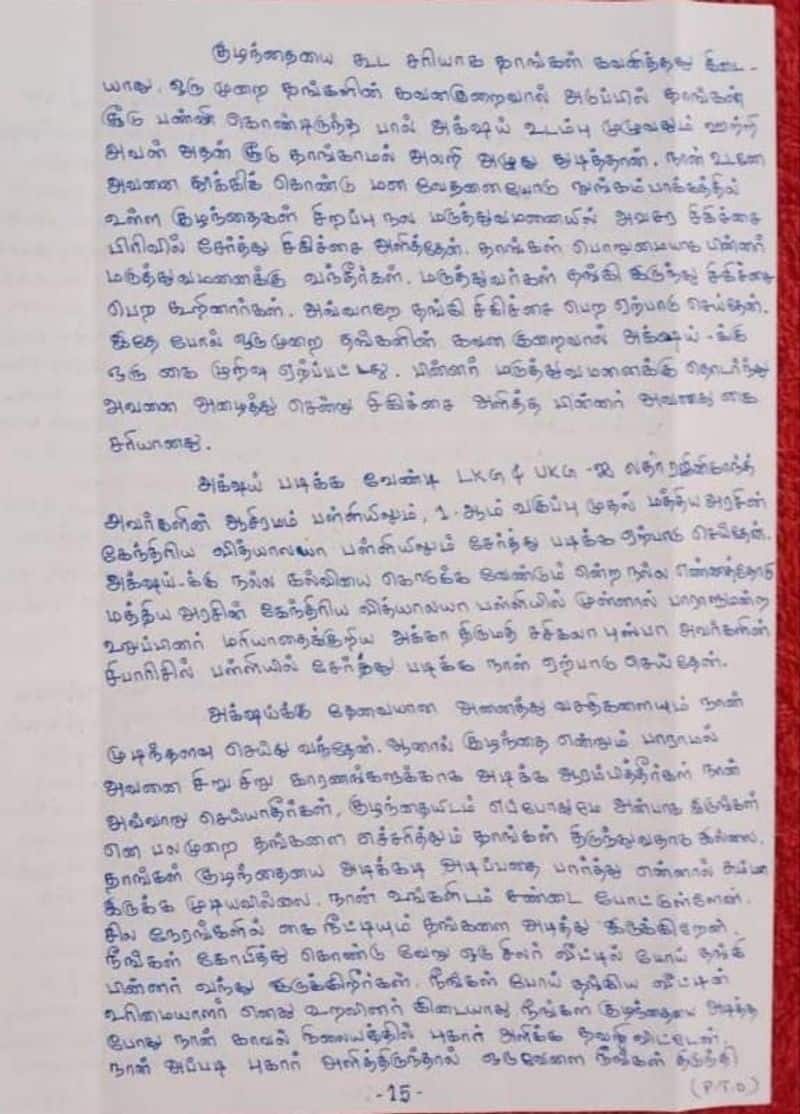 குழந்தையை கூட சரியாக தாங்கள் கவனித்தது கிடை-
யாது. ஒரு முறை தங்களின் கவனகுறைவால் அடுப்பில் தாங்கள்
சூடு பண்ணி கொண்டிருந்த பால் அக்ஷய் உடம்பு முழுவதும் ஊற்றி
அவன் அதன் சூடு தாங்காமல் அலறி அழுது துடித்தான். நான் உடனே
அவனை தூக்கிக் கொண்டு மன வேதனையோடு நுங்கம்பாக்கத்தில்
உள்ள குழந்தைகள் சிறப்பு நல மருத்துவமணையில் அவசர சிகிச்சை
பிரிவில் சேர்த்து சிகிச்சை அளித்தேன். தாங்கள் பொறுமையாக பின்னர்
மருத்துவமனைக்கு வந்தீர்கள். மருத்துவர்கள் தங்கி இருந்து சிகிச்சை
பெற கூறினார்கள். அவ்வாறே தங்கி சிகிச்சை பெற ஏற்பாடு செய்தேன்.
இதே போல் ஒருமுறை தங்களின் கவன குறைவால் அக்ஷய்-க்கு
ஒரு கை முறிவு ஏற்ப்பட்டது. பின்னர் மருத்துவமனைக்கு தொடர்ந்து
அவனை அழைத்து சென்று சிகிச்சை அளித்த பின்னர் அவனது கை
சரியானது.
அக்ஷய் படிக்க வேண்டி LKG & UKG-ஐ லதா ரஜினிகாந்த்
அவர்களின் ஆசிரமம் பள்ளியிலும், 1-ஆம் வகுப்பு முதல் மத்திய அரசின்
கேந்திரிய வித்யாலயா பள்ளியிலும் சேர்த்து படிக்க ஏற்பாடு செய்தேன்.
அக்ஷய்-க்கு நல்ல கல்வியை கொடுக்க வேண்டும் என்ற நல்ல எண்ணத்தோடு
மத்திய அரசின் கேந்திரிய வித்யாலயா பள்ளியில் முன்னால் பாராளுமன்ற
உறுப்பினர் மரியாதைக்குறிய அக்கா திருமதி சசிகலா புஸ்பா அவர்களின்
சிபாரிசில் பள்ளியில் சேர்த்து படிக்க நான் ஏற்பாடு செய்தேன்.
அக்ஷய்க்கு தேவையான அனைத்து வசதிகளையும் நான்
முடிந்தளவு செய்து வந்தேன். ஆனால் குழந்தை என்றும் பாராமல்
அவனை சிறு சிறு காரணங்களுக்காக அடிக்க ஆரம்பித்தீர்கள் நான்
அவ்வாறு செய்யாதீர்கள், குழந்தையிடம் எப்போதுமே அன்பாக இருங்கள்
என பலமுறை தங்களை எச்சரித்தும் தாங்கள் திருந்துவதாக இல்லை.
தாங்கள் குழந்தையை அடிக்கடி அடிப்பதை பார்த்து என்னால் சும்மா
இருக்க முடியவில்லை. நான் உங்களிடம் சண்டை போட்டுள்ளேன்.
சில நேரங்களில் கை நீட்டியும் தங்களை அடித்து இருக்கிறேன்.
நீங்கள் கோபித்து கொண்டு வேறு ஒரு சிலர் வீட்டில் போய் தங்கி
பின்னர் வந்து இருக்கிறீர்கள். நீங்கள் போய் தங்கிய வீட்டின்
உரிமையாளர் எனது உறவினர் கிடையாது நீங்கள் குழந்தையை அடித்த
போது நான் காவல் நிலையத்தில் புகார் அளிக்க தவறி விட்டேன்.
நான் அப்படி புகார் அளித்திருந்தால் ஒருவேளை நீங்கள் திருந்தி
-15-
(P.T.O)